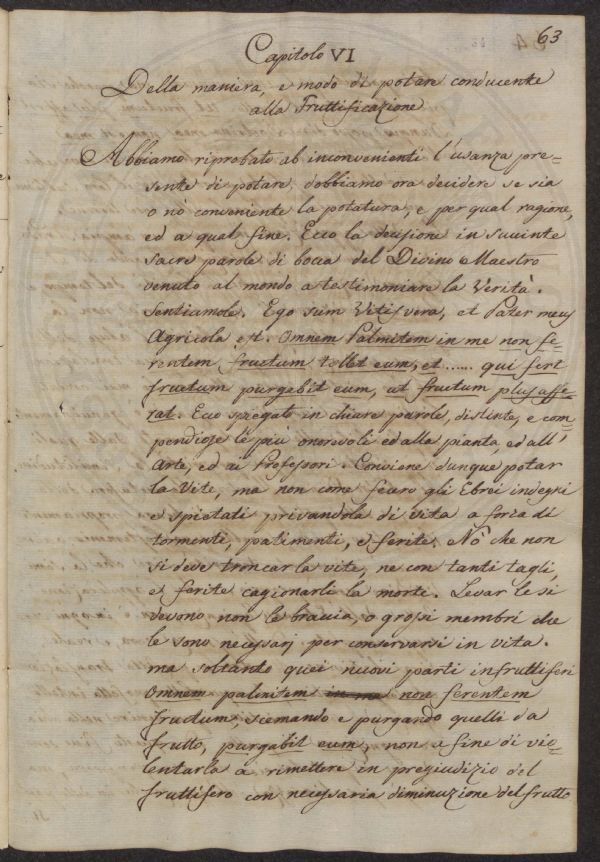 63
Capitolo VI
Della maniera, e modo di potare conducente
alla Fruttificazione
Abbiamo riprobato ab inconvenienti l'usanza pre=
sente di potare, dobbiamo ora decidere se sia
o nò conveniente la potatura, e per qual ragione,
ed a qual fine. Ecco la decisione in succinte
sacre parole di bocca del Divino Maestro
venuto al mondo a testimoniare la Verità.
Sentiamole. Ego sum Vitis vera, et Pater meus
Agricola est. Omnem Palmitem in me non fe=
rentem fructum tollet eum, et ...... qui fert
fructum purgebit eum, ut fructum plus affe=
rat. Ecco spiegato in chiare parole, distinte, e com=
pendiose le più onorevoli ed alla pianta, ed all'
Arte, ed ai Professori. Conviene dunque potar
la Vite, ma non come fecero gli Ebrei indegni
e spietati privandola di vita a forza di
tormenti, patimenti, e ferite. Nò che non
si deve troncar la vite, ne con tanti tagli,
e ferite cagionarli la morte. Levar le si
devono non le braccia, o grossi membri che
le sono necessarj per conservarsi in vita.
ma soltanto quei nuovi parti infruttiferi
Omnem palmitem in me non ferentem
fructum, scemando e purgando quelli da
frutto, purgabit eum, non a fine di vio=
lentarla a rimettere in pregiudizio del
fruttifero con necessaria diminuzione del frutto